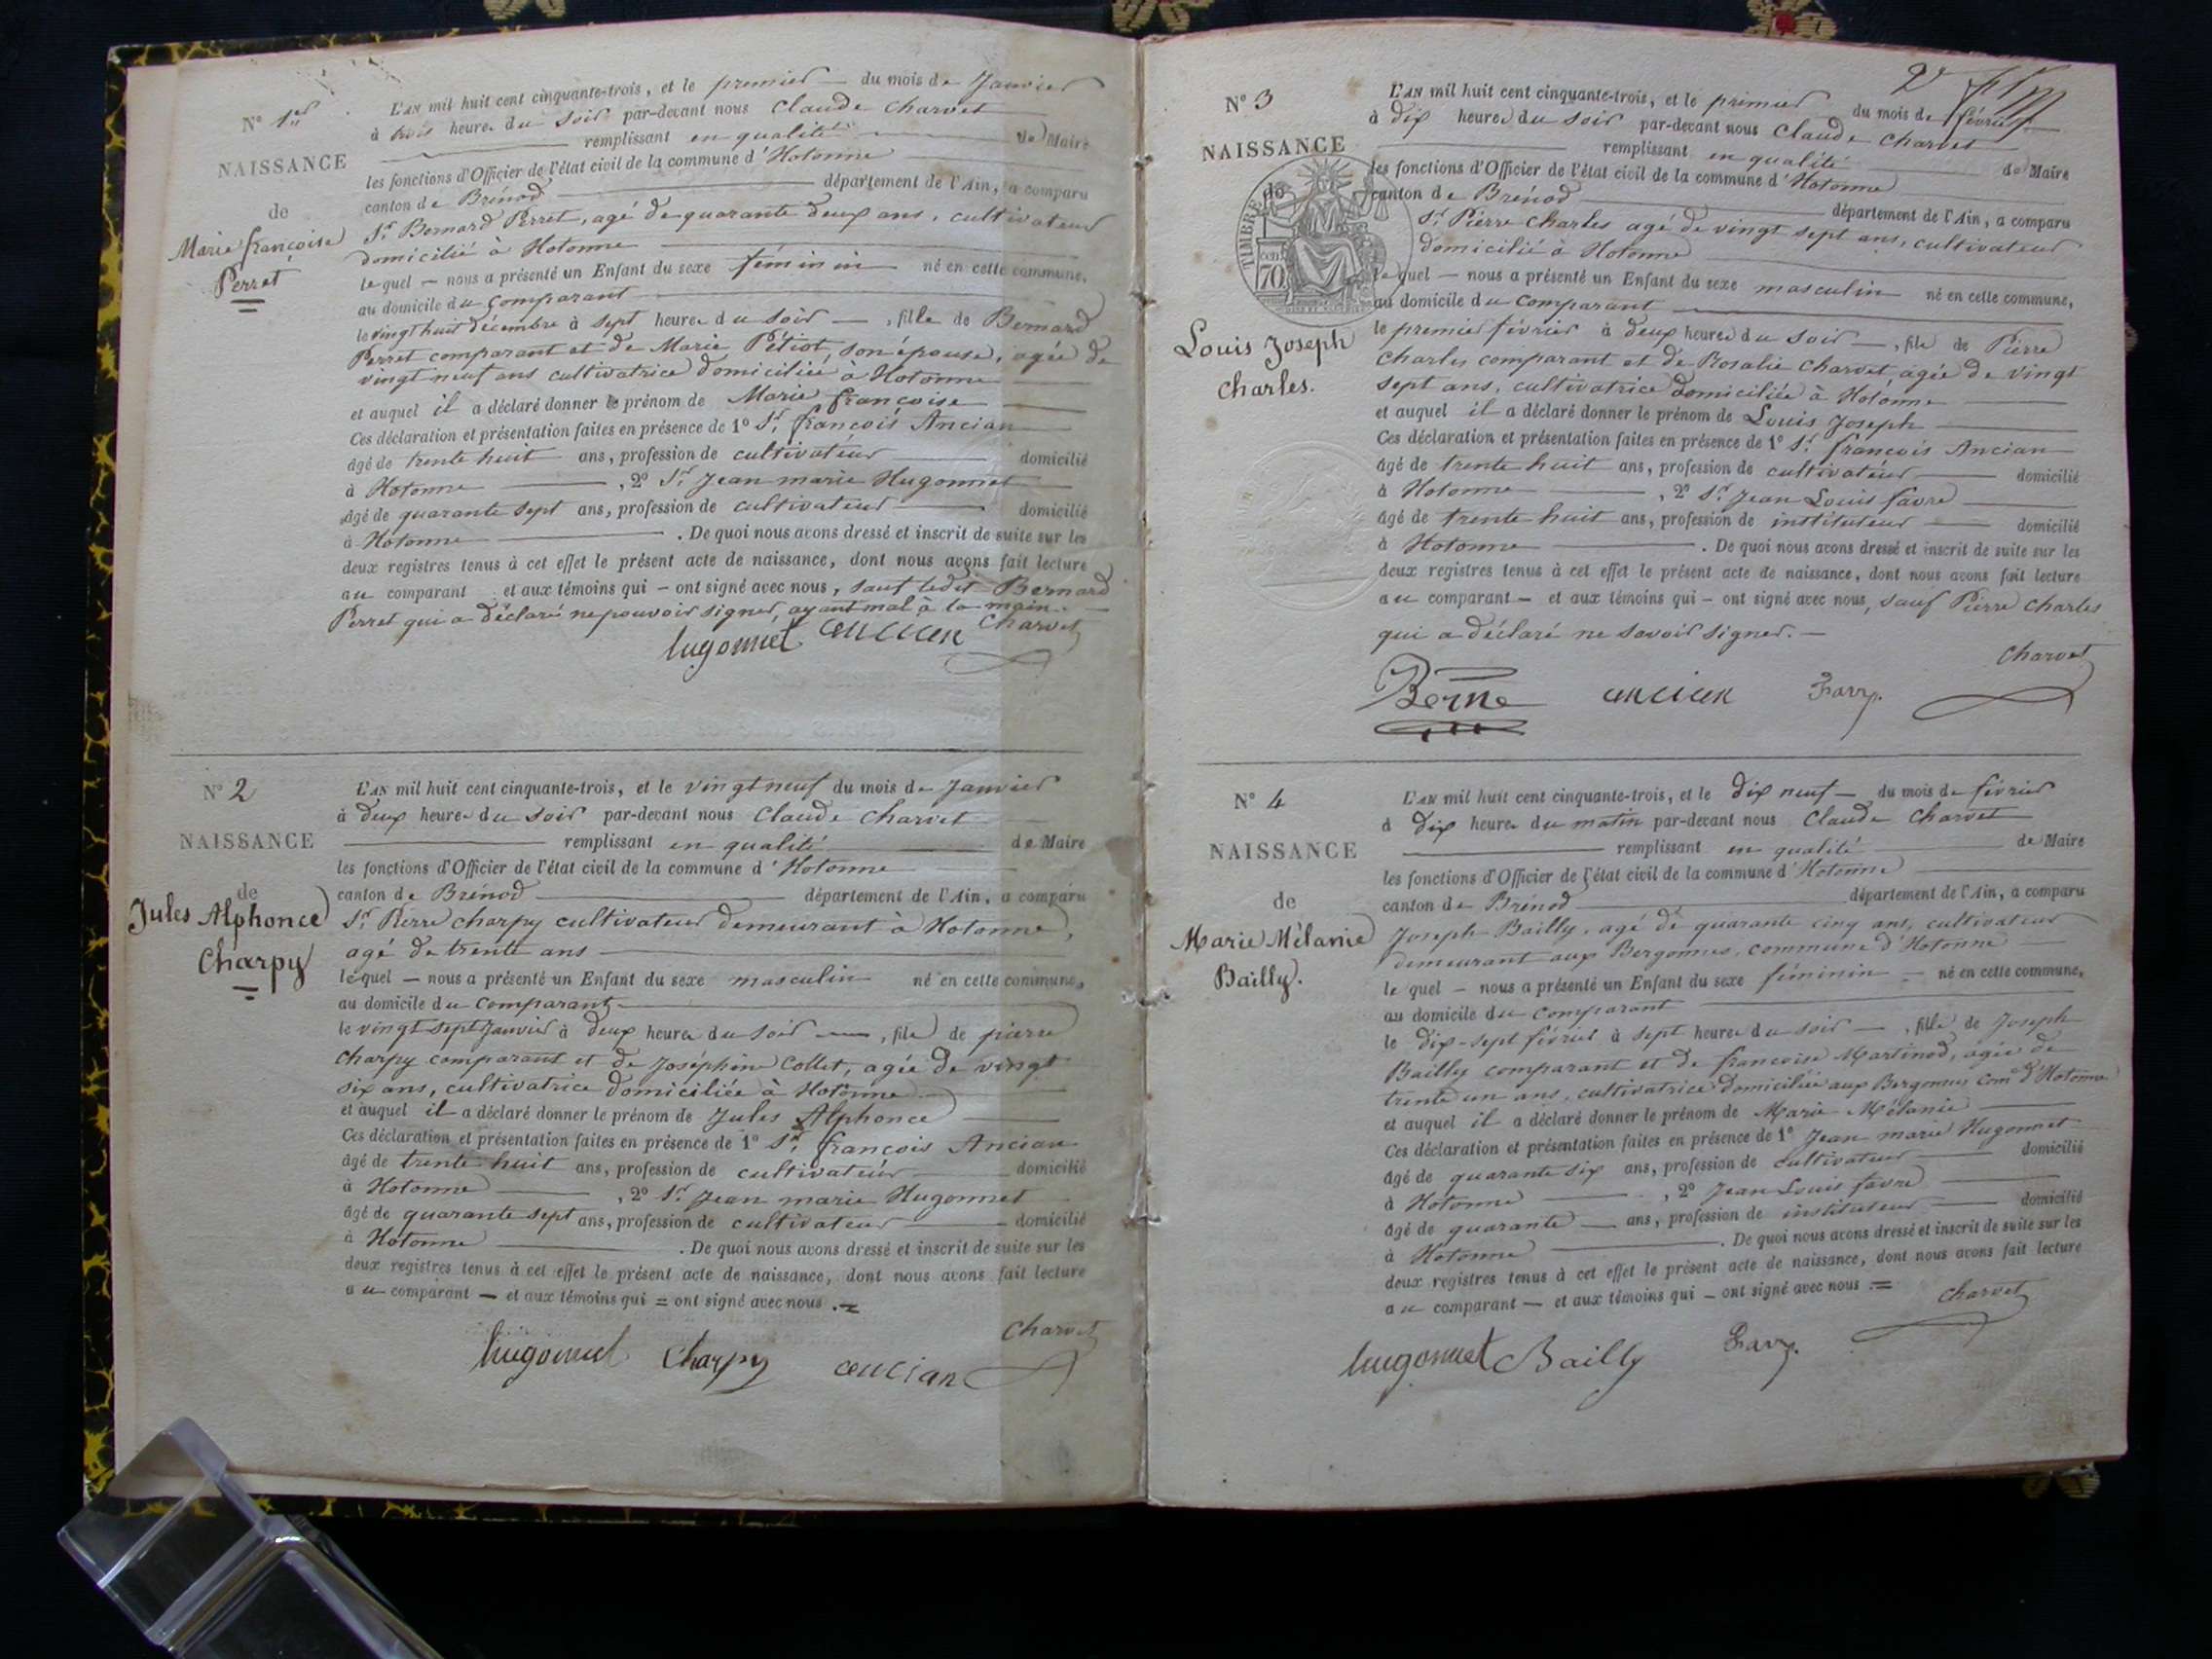 N° 1er
NAISSANCE
de
Marie françoise
Perret
L'AN mil huit cent cinquante-trois, et le premier du mois de Janvier
à trois heures du soir par-devant nous Claude Charvet
remplissant en qualité de Maire
les fonctions d'Officier de l'état civil de la commune d'Hotonne
canton de Brénod département de l'Ain, a comparu
Sr Bernard Perret, agé de quarante deux ans, cultivateur
domicilié à Hotonne
lequel nous a présenté un Enfant du sexe féminin né en cette commune,
au domicile du comparant
le vingt huit décembre à sept heures du soir, fille de Bernard
Perret comparant et de Marie Pétiot, son épouse, agée de
vingt neuf ans cultivatrice domiciliée à Hotonne
et auquel il a déclaré donner le prénom de Marie françoise
Ces déclaration et présentation faites en présence de 1° Sr françois Ancian
âgé de trente huit ans, profession de cultivateur domicilié
à Hotonne, 2° Sr Jean marie Hugonnet
âgé de quarante sept ans, profession de cultivateur domicilié
à Hotonne. De quoi nous avons dressé et inscrit de suite sur les
deux registres tenus à cet effet le présent acte de naissance, dont nous avons fait lecture
au comparant et aux témoins qui – ont signé avec nous, sauf ledit Bernard
Perret qui a déclaré ne pouvoir signer, ayant mal à la main.
hugonnet ancian Charvet
N° 2
NAISSANCE
de
Jules Alphonce
Charpy
L'AN mil huit cent cinquante-trois, et le vingt neuf du mois de Janvier
à deux heures du soir par-devant nous Claude Charvet
remplissant en qualité de Maire
les fonctions d'Officier de l'état civil de la commune d'Hotonne
canton de Brénod département de l'Ain, a comparu
Sr Pierre Charpy cultivateur demeurant à Hotonne,
agé de trente ans
lequel – nous a présenté un Enfant du sexe masculin né en cette commune,
au domicile du comparant
le vingt sept Janvier à deux heures du soir, fils de pierre
Charpy comparant et de Joséphine Collet, agée de vingt
six ans, cultivatrice domiciliée à Hotonne
et auquel il a déclaré donner le prénom de Jules Alphonce
Ces déclaration et présentation faites en présence de 1° Sr françois Ancian
âgé de trente huit ans, profession de cultivateur domicilié
à Hotonne, 2° Sr Jean marie Hugonnet
âgé de quarante sept ans, profession de cultivateur domicilié
à Hotonne. De quoi nous avons dressé et inscrit de suite sur les
deux registres tenus à cet effet le présent acte de naissance, dont nous avons fait lecture
au comparant – et aux témoins qui = ont signé avec nous.
Charvet
hugonnet Charpy ancian
N° 3
NAISSANCE
de
TIMBRE
70
Louis Joseph
Charles.
L'AN mil huit cent cinquante-trois, et le primier du mois de février
à dix heures du soir par-devant nous Claude Charvet
remplissant en qualité de Maire
les fonctions d'Officier de l'état civil de la commune d'Hotonne
canton de Brénod département de l'Ain, a comparu
Sr Pierre Charles agé de vingt sept ans, cultivateur
domicilié à Hotonne
lequel – nous a présenté un Enfant du sexe masculin né en cette commune,
au domicile du comparant
le premier février à deux heures du soir, fils de Pierre
Charles comparant et de Rosalie Charvet, agée de vingt
sept ans, cultivatrice domiciliée à Hotonne
et auquel il a déclaré donner le prénom de Louis Joseph
Ces déclaration et présentation faites en présence de 1° Sr françois Ancian
âgé de trente huit ans, profession de cultivateur domicilié
à Hotonne, 2° Sr Jean Louis favre
âgé de trente huit ans, profession de instituteur domicilié
à Hotonne. De quoi nous avons dressé et inscrit de suite sur les
deux registres tenus à cet effet le présent acte de naissance, dont nous avons fait lecture
au comparant – et aux témoins qui – ont signé avec nous, sauf Pierre Charles
qui a déclaré ne savoir signer. –
Charvet
Berne ancian Favre
N° 4
NAISSANCE
de
Marie Mélanie
Bailly.
L'AN mil huit cent cinquante-trois, et le dix neuf du mois de février
à dix heures du matin par-devant nous Claude Charvet
remplissant en qualité de Maire
les fonctions d'Officier de l'état civil de la commune d'Hotonne
canton de Brénod département de l'Ain, a comparu
Joseph Bailly, agé de quarante cinq ans, cultivateur
demeurant aux Bergonnes, commune d'Hotonne
lequel – nous a présenté un Enfant du sexe féminin – né en cette commune,
au domicile du comparant
le dix-sept février à sept heures du soir, fille de Joseph
Bailly comparant et de françoise Martinod, agée de
trente un ans, cultivatrice domiciliée aux Bergonnes Comne d'Hotonne
et auquel il a déclaré donner le prénom de Marie Mélanie
Ces déclaration et présentation faites en présence de 1° Jean marie Hugonnet
âgé de quarante six ans, profession de cultivateur domicilié
à Hotonne, 2° Jean Louis favre
âgé de quarante ans, profession de instituteur domicilié
à Hotonne. De quoi nous avons dressé et inscrit de suite sur les
deux registres tenus à cet effet le présent acte de naissance, dont nous avons fait lecture
au comparant – et aux témoins qui – ont signé avec nous.
Charvet
hugonnet Bailly Favre